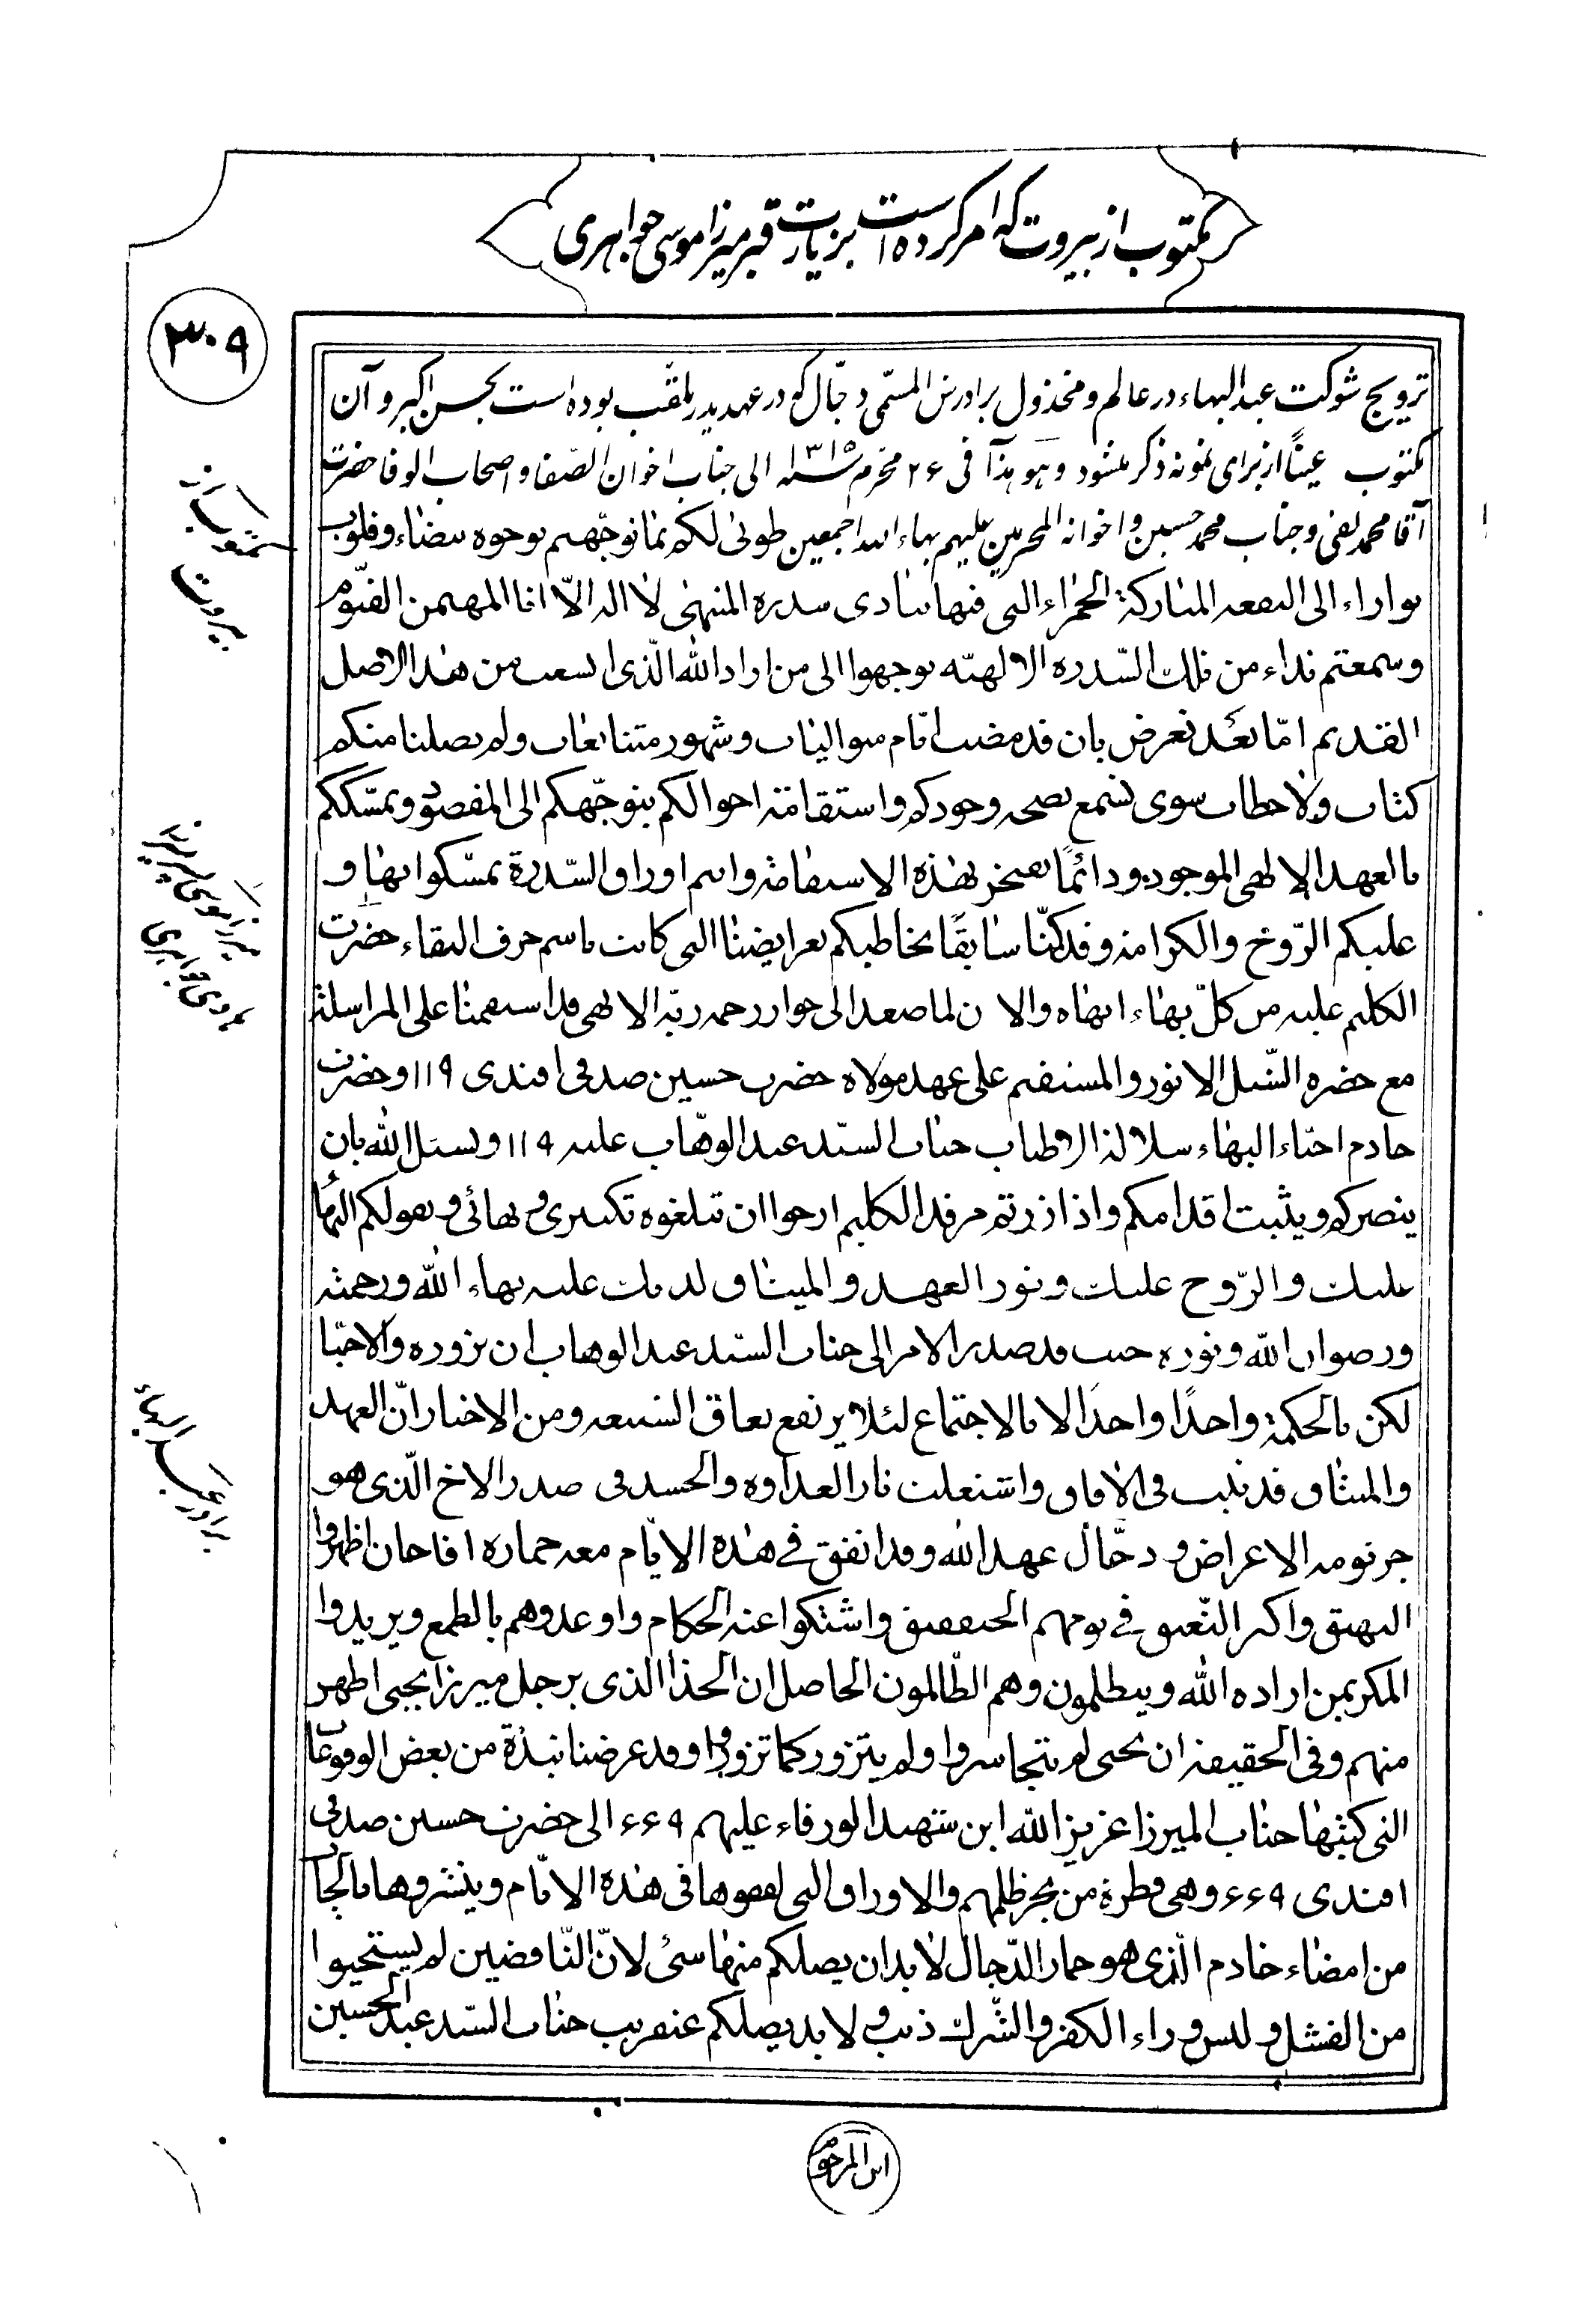 مکتوب از بیروت که امر کرده است بزیارت قبر میرزا موسی جواهری
۳۰۹
ترویج شوکت عبد البهاء در عالم و مخذول برادرش المسمّی دجّال که در عهد پدر ملقّب بوده است بغصن اکبر و آن
مکتوب عیناً از برای نمونه ذکر میشود و هو هذا فی ۲۶ محرّم سنه ۱۳۱۵ الی جناب اخوان الصّفا و اصحاب الوفا حضرت
آقا محمد تقی و جناب محمد حسین و اخوانه المحترمین علیهم بهاء الله اجمعین طوبی لکم بما توجّهتم بوجوه بیضاء و قلوب
نوراء الی البقعه المبارکة الحمراء التی فیها ینادی سدره المنتهی لا اله الّا انا المهیمن القیّوم
و سمعتم نداء من تلک السّدره الالهیّه توجهوا الی من اراد الله الّذی انشعب من هذا الاصل
القدیم امّا بعد نعرض بان قد مضت ایّام متوالیات و شهور متتابعات و لم یصلنا منکم
کتاب ولا خطاب سوی نسمع بصحه وجودکم و استقامة احوالکم بتوجّهکم الی المقصود و تمسّککم
بالعهد الالهی الموجود و دائماً نفتخر بهذه الاستقامة و انتم اوراق السّدرة تمسّکوا بها و
علیکم الرّوح والکرامة و قد کنّا سابقاً نخاطبکم بعرایضنا التی کانت باسم حرف البقاء حضرت
الکلیم علیه من کلّ بهاء ابهاه والان لما صعد الی جوار رحمه ربّه الالهی قد استقمنا علی المراسلة
مع حضره النّبیل الانور والمستقیم علی عهد مولاه حضرت حسین صدقی افندی ۱۱۹ و حضرت
خادم احبّاء البهاء سلالة الاطیاب جناب السیّد عبد الوهّاب علیه ۱۱۹ و نسئل الله بان
ینصرکم و یثبت اقدامکم و اذا زرتم مرقد الکلیم ارجوا ان تبلغوه تکبیری و بهائی و بقولکم البهاء
علیک والرّوح علیک و نور العهد والمیثاق لدیک علیه بهاء الله و رحمته
و رضوان الله و نوره حیث قد صدر الامر الی جناب السیّد عبد الوهاب ان یزوره والاحبّا
لکن بالحکمة واحداً واحداً لا بالاجتماع لئلا یرتفع نعاق الشیعه و من الاخبار انّ العهد
والمیثاق قد ثبت فی الافاق و اشتعلت نار العداوه والحسد فی صدر الاخ الّذی هو
جرثومه الاعراض و دجّال عهد الله و قد اتفق فی هذه الایّام معه حماره اقاجان اظهروا
النهیق و اکبر النّعیق فی یومهم الحقیقی و اشتکوا عند الحکام و اوعدوهم بالطمع و یریدوا
المکر بمن اراده الله و یتظلمون و هم الظّالمون الحاصل ان الحذا الذی برجل میرزا یحیی اطهر
منهم و فی الحقیقة ان یحیی لم یتجاسروا و لم یتزور کما تزوّروا و قد عرضنا نبذة من بعض الوقوعات
التی کتبها جناب المیرزا عزیز الله ابن شهید الورقاء علیهم ۶۶۹ الی حضرت حسین صدقی
افندی ۶۶۹ و هی قطرة من بحر ظلمهم والاوراق التی لفقوها فی هذه الایّام و ینشروها بالجهات
من امضاء خادم الّذی هو حمار الدّجال لابد ان یصلکم منها شیء لانّ النّاقضین لم یستحیوا
من الفشل و لیس وراء الکفر والشّرک ذنب و لابد یصلکم عنقریب جناب السیّد عبد الحسین
مکتوب از
بیروت
میرزا موسی
جواهری
برادر عبد البهاء
ابن المرحوم